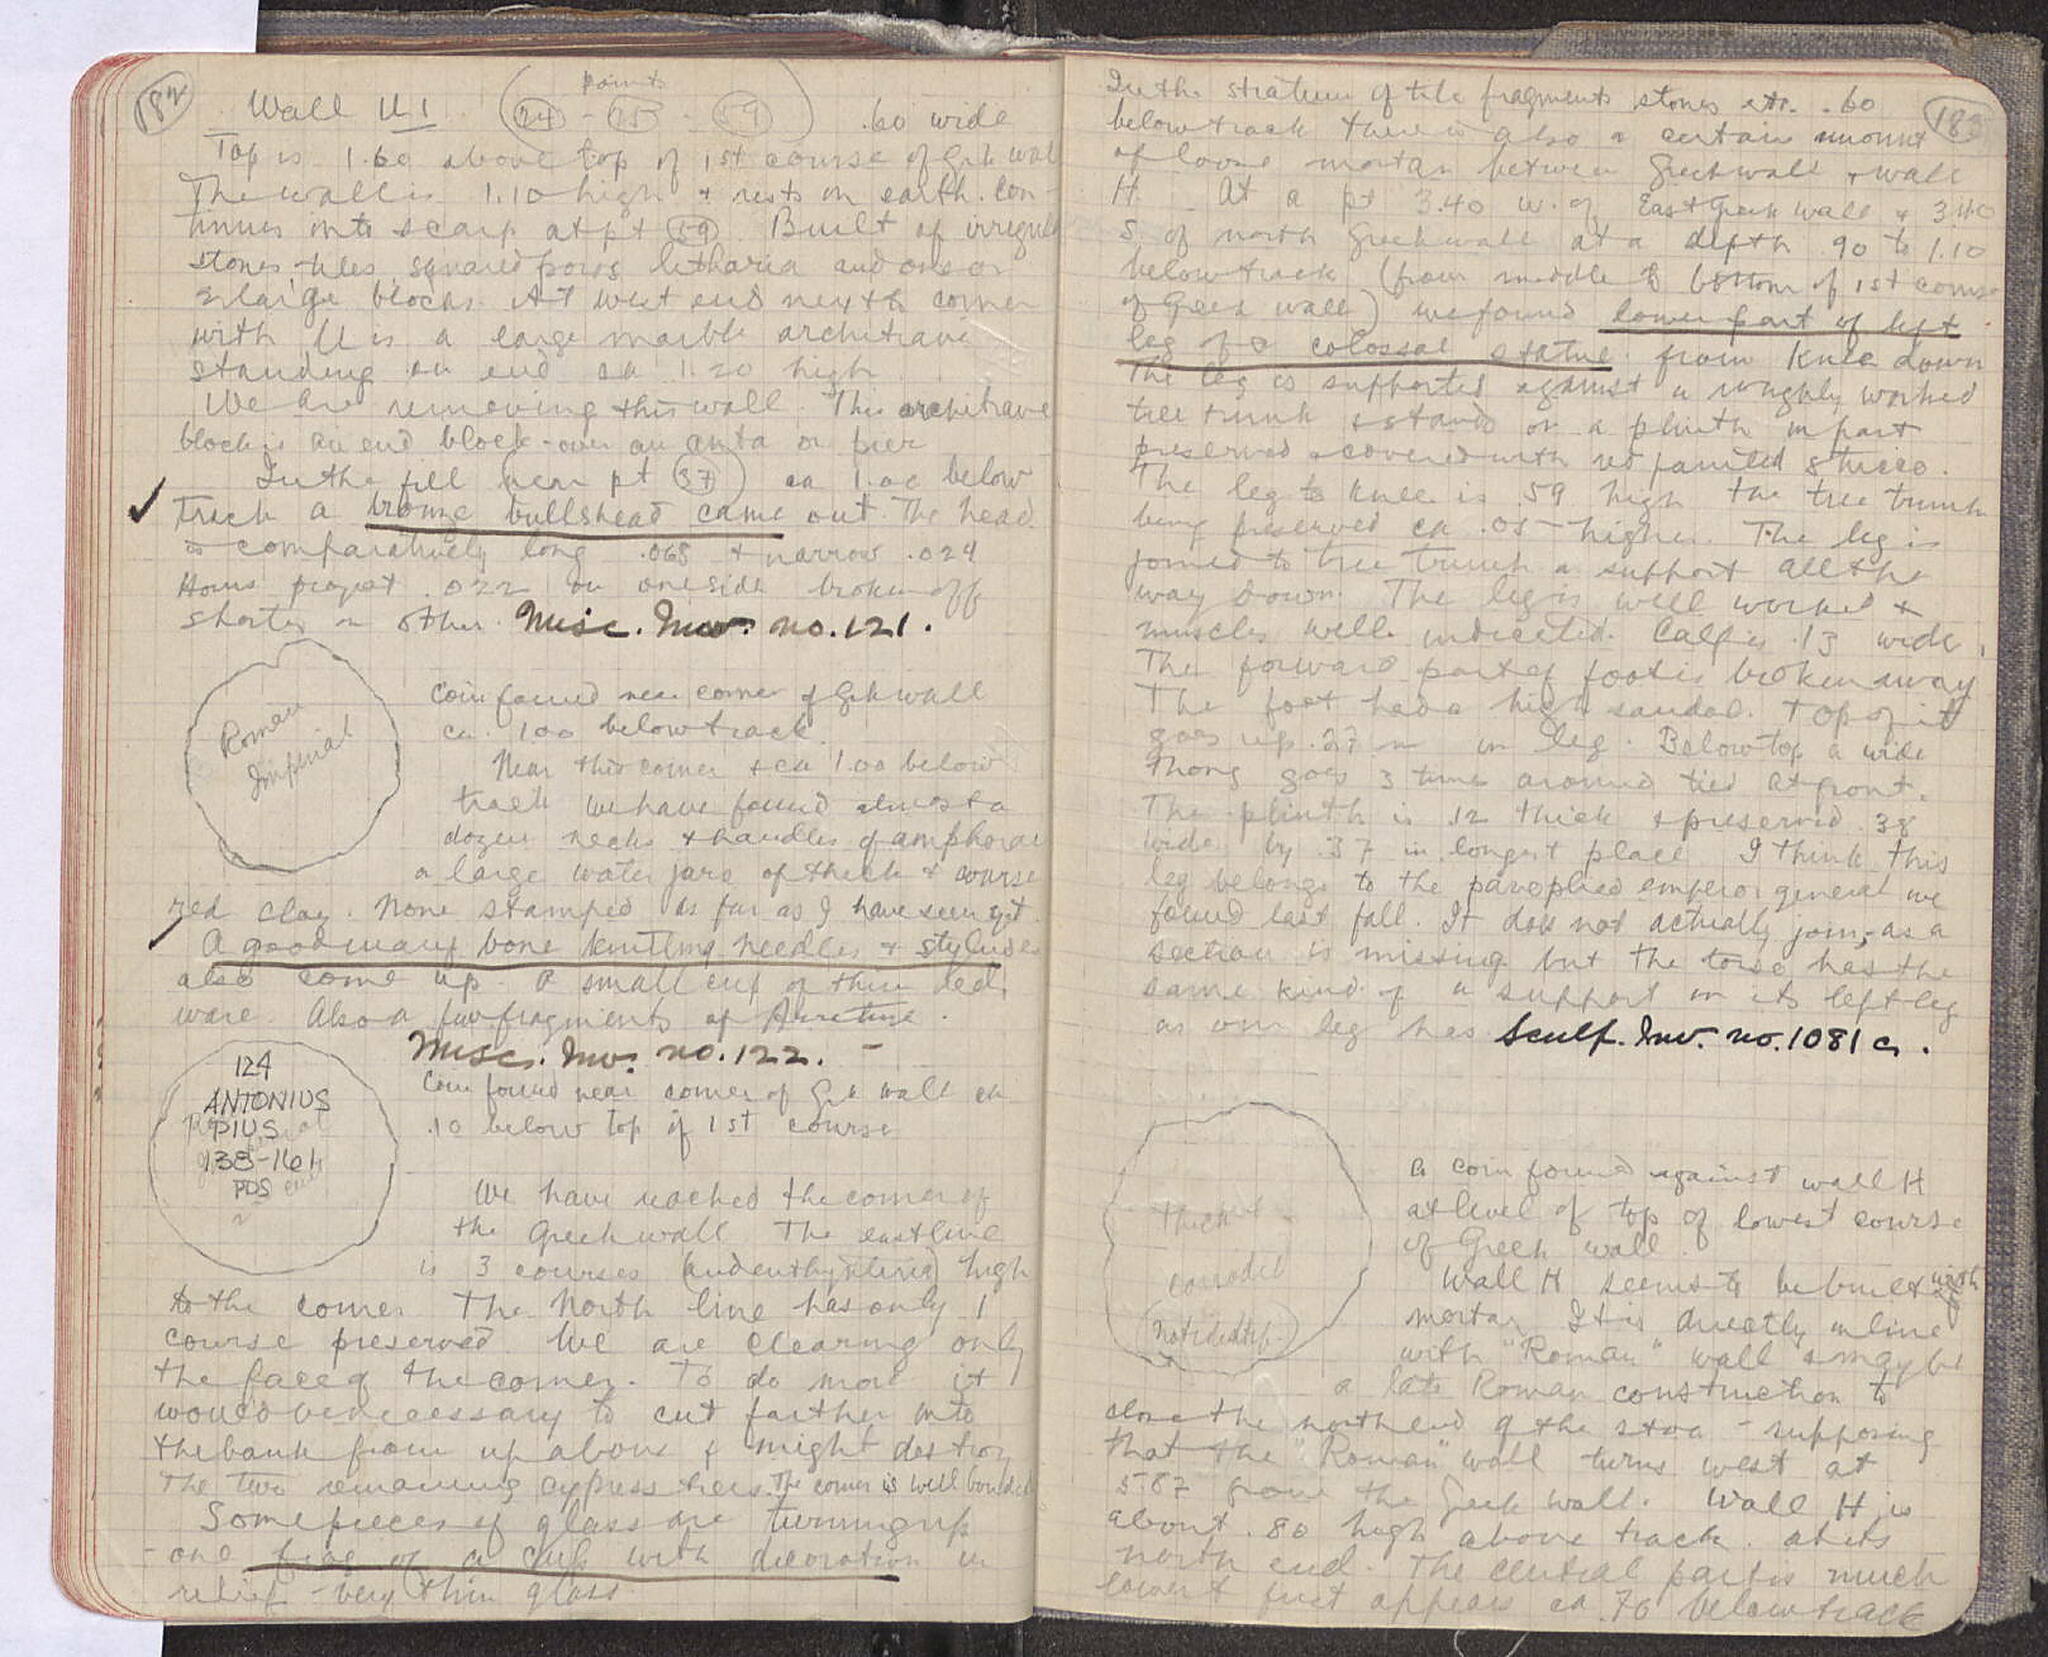 182
points
Wall U1 (24 - 25 - 59) .60 wide
Top is 1.60 above top of 1st course of Grk wall
The wall is 1.10 high + rests on earth. Con-
tinues into scarp at pt 59. Built of irregular
stones, tiles, squared poros litharia and one or
2 large blocks. At west end next to corner
with U is a large marble architrave
standing on end ca 1.20 high
We are removing this wall. This architrave
block is an end block - over an anta or pier
In the fill (near pt 37) ca 1.00 below
track a bronze bullshead came out. The head
is comparatively long .068 + narrow .024
Horns project .022 on one side broken off
shorter on other. Misc. Inv. no. 121.
Roman
Imperial
Coin found near corner of Grk wall
ca. 1.00 below track.
Near this corner + ca 1.00 below
track we have found almost a
dozen necks + handles of amphorae
or large water jars of thick + coarse
red clay. None stamped as far as I have seen yet.
A good many bone knitting needles + styluses
also come up. A small cup of thin red
ware. Also a few fragments of Arretine.
Misc. Inv. no. 122. -
124
ANTONIUS
PIUS
138-161
PDS
Coin found near corner of Grk wall ca
.10 below top of 1st course
We have reached the corner of
the Greek wall. The east line
is 3 courses (and euthynteria) high
to the corner. The North line has only 1
course preserved. We are clearing only
the face of the corner. To do more it
would be necessary to cut farther into
the bank from up above & might destroy
the two remaining cypress trees. The corner is well bonded
Some pieces of glass are turning up
- one frag of a cup with decoration in
relief - very thin glass
183
In the stratum of tile fragments stones etc. .60
below track there is also a certain amount
of loose mortar between Greek wall + wall
H. At a pt 3.40 w. of East Greek wall + 3.40
S. of north Greek wall at a depth .90 to 1.10
below track (from middle to bottom of 1st course
of Greek wall) we found lower part of left
leg of a colossal statue from knee down
The leg is supported against a roughly worked
tree trunk + stands on a plinth in part
preserved + covered with red painted stucco.
The leg to knee is .59 high the tree trunk
being preserved ca .05 higher. The leg is
joined to tree trunk + support all the
way down. The leg is well worked +
muscles well indicated. Calf is .13 wide.
The forward part of foot is broken away
The foot had a high sandal. Top of it
goes up .27 on leg. Below top a wide
thong goes 3 times around tied at front.
The plinth is .12 thick + preserved .38
wide by .37 in longest place. I think this
leg belongs to the panoplied emperor general we
found last fall. It does not actually join, as a
section is missing but the torso has the
same kind of a support on its left leg
as our leg has Sculp. Inv. no. 1081 a.
thick
corroded
not identif.
a coin found against wall H
at level of top of lowest course
of Greek wall.
Wall H seems to be built with
mortar. It is directly in line
with "Roman" wall + may be
a late Roman construction to
close the north end of the stoa - supposing
that the "Roman" wall turns west at
5.87 from the Greek wall. Wall H is
about .80 high above track. at its
north end. The central part is much
lower + first appears ca .70 below track